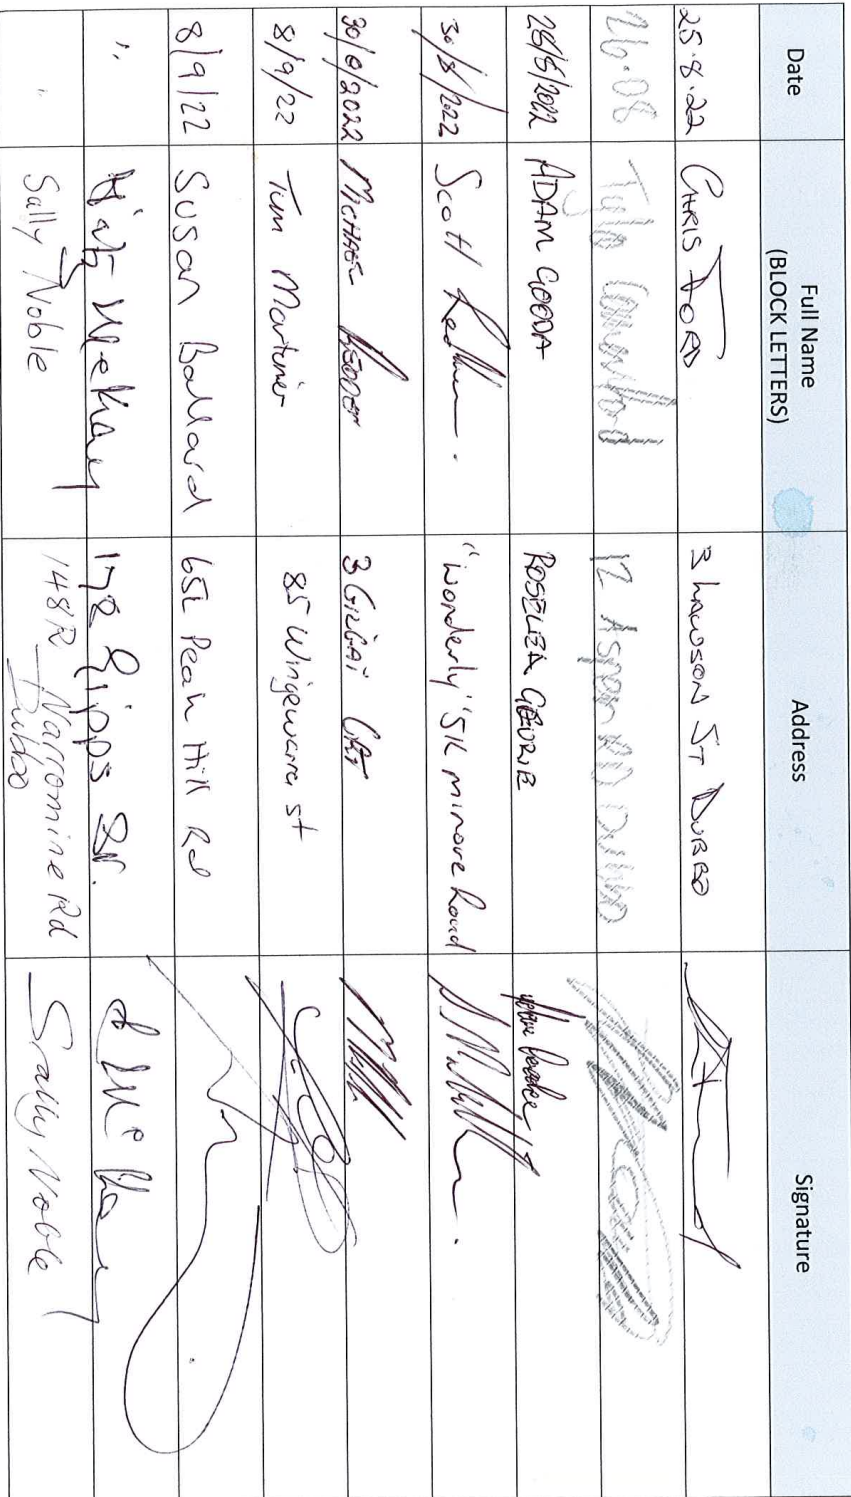 Date Full Name (BLOCK LETTERS) Address Signature
25.8.22 CHRIS FORD 3 LAWSON ST DUBBO
26.08 12 Aspen RD Dubbo
28/8/2022 ADAM GOODA ROSELEA GEURIE
30/8/2022 Scott "Wonderly" 5R minore Road
30/8/2022 MICHAEL 3 GILGAI CRT
8/9/22 Tim Mortimer 85 Wingewarra st
8/9/22 Susan Ballard 65L Peak Hill Rd
" McKay 178 Gipps St.
" Sally Noble 148R Narromine Rd Dubbo Sally Noble